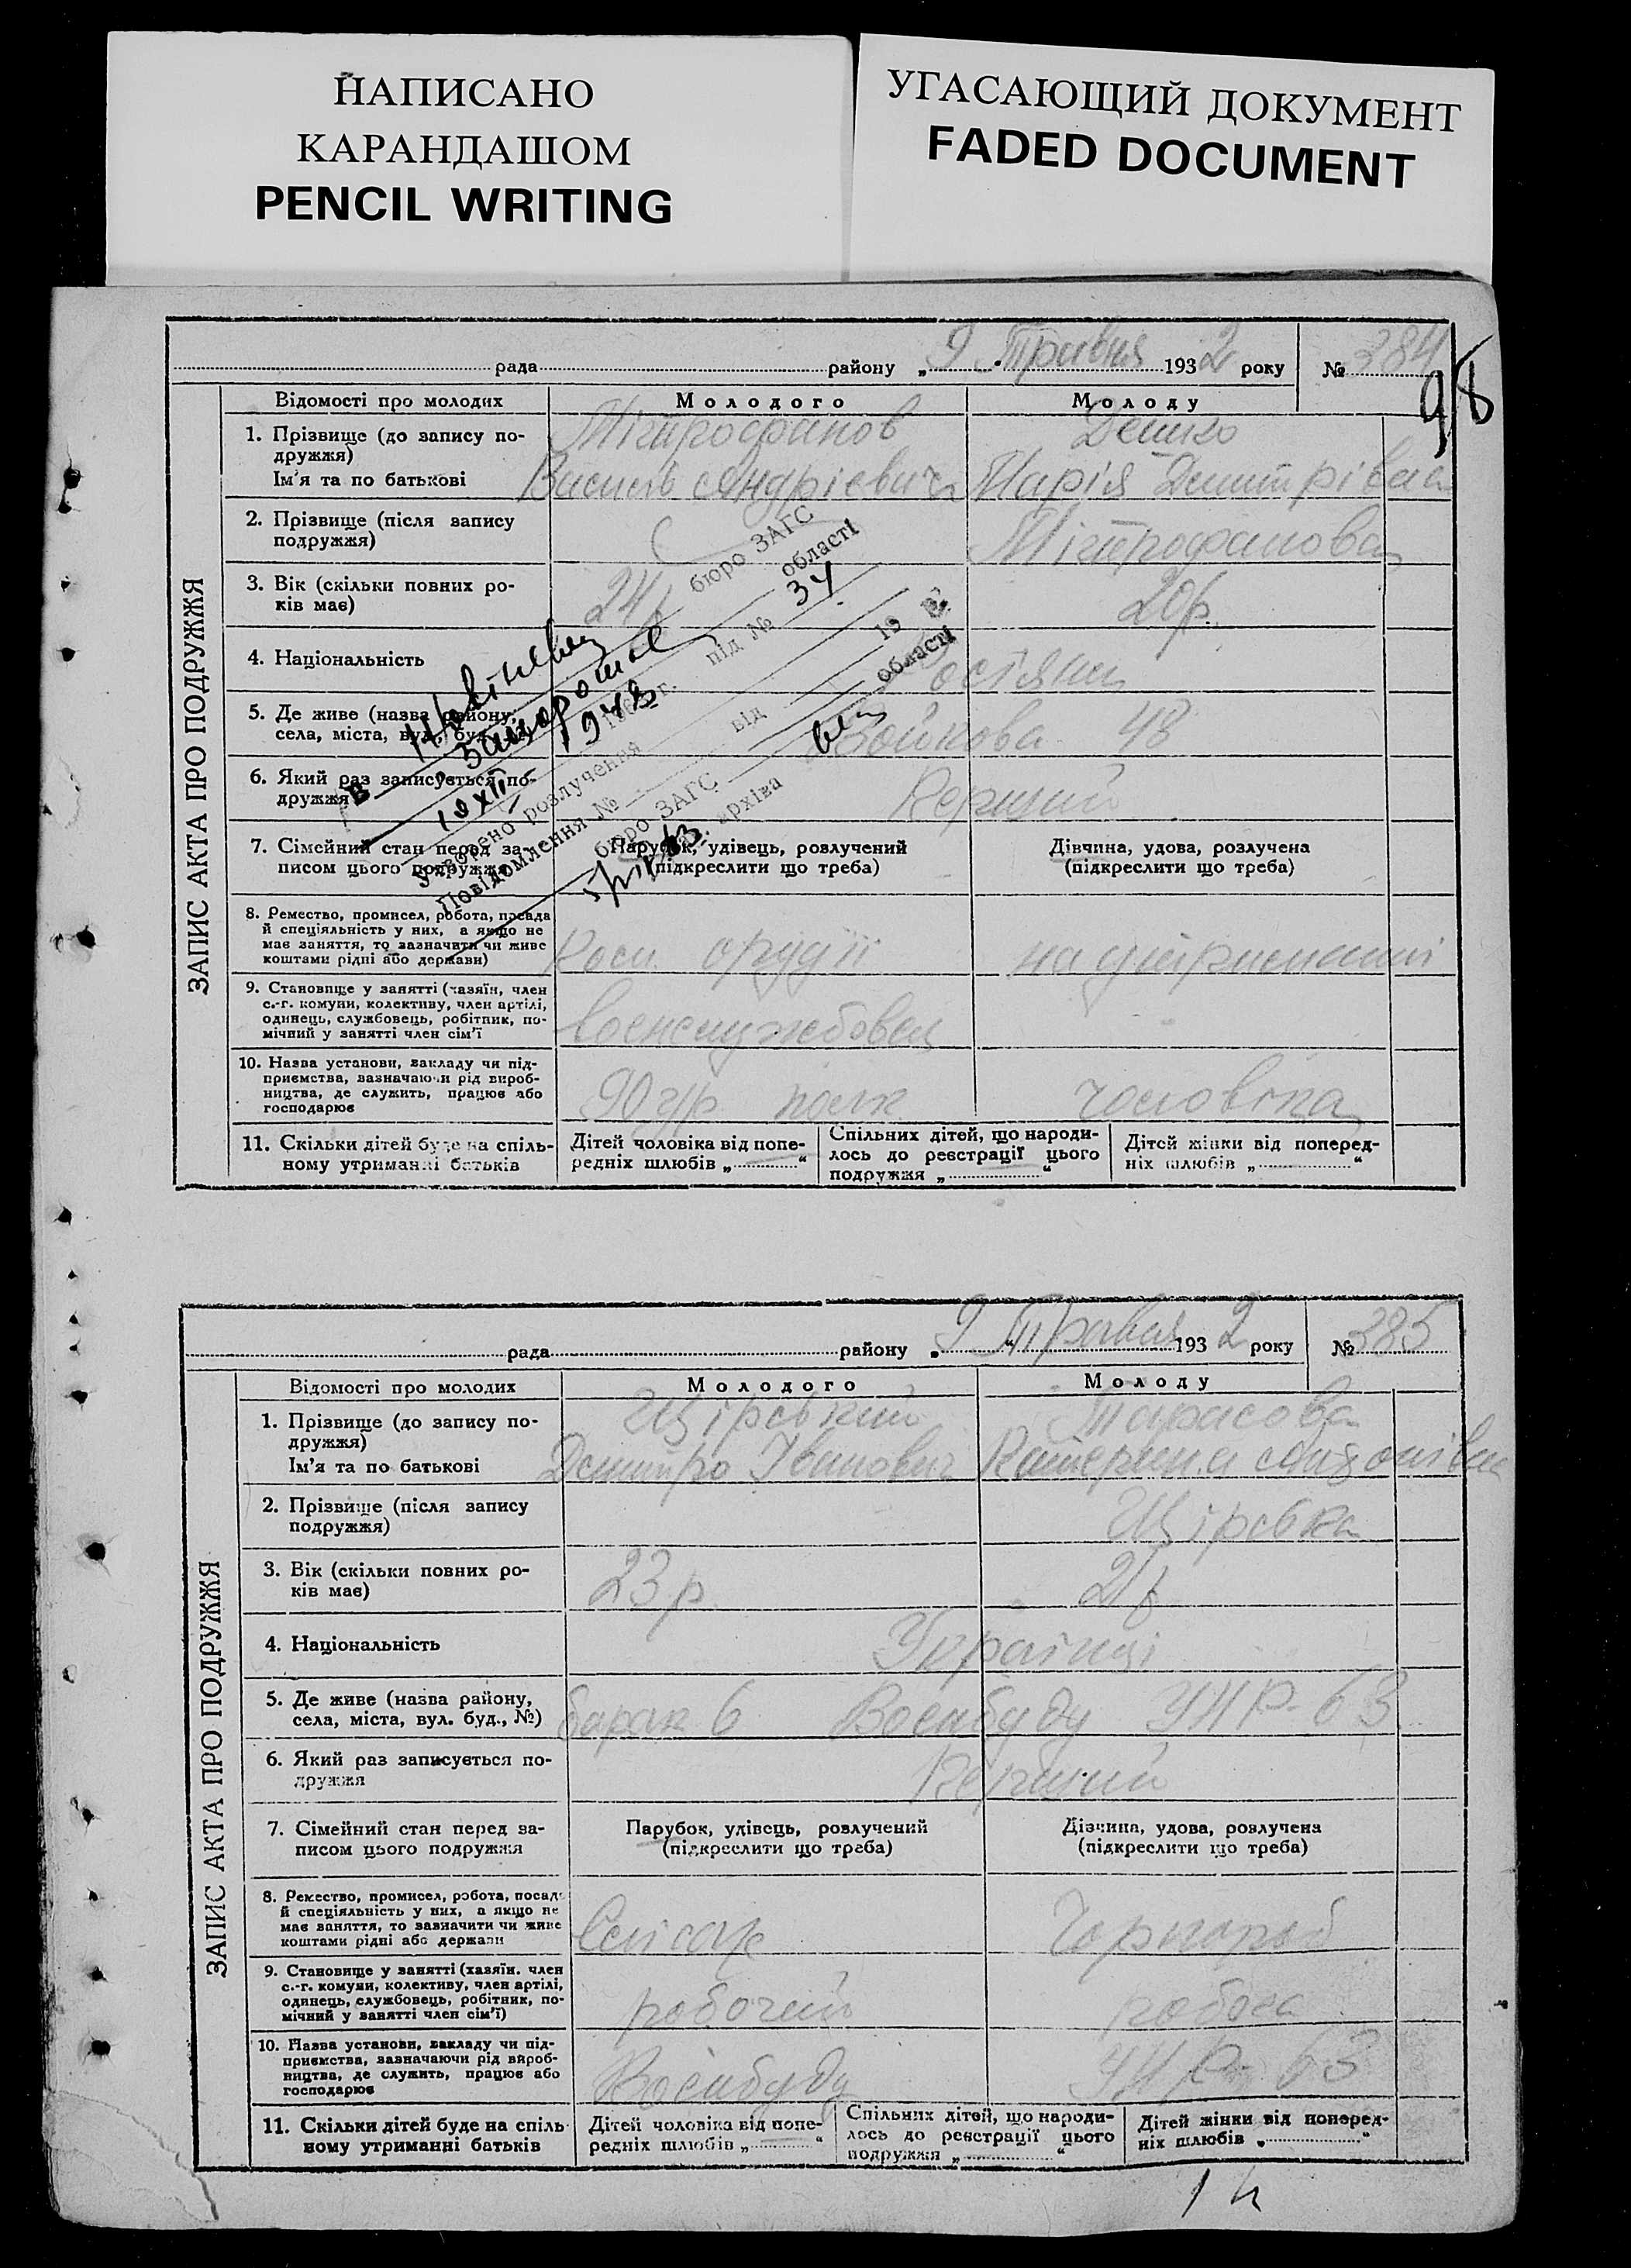 НАПИСАНО
КАРАНДАШОМ
PENCIL WRITING
УГАСАЮЩИЙ ДОКУМЕНТ
FADED DOCUMENT
рада району „9 Травня 1932 року № 384
98
ЗАПИС АКТА ПРО ПОДРУЖЖЯ
Відомості про молодих Молодого Молоду
1. Прізвище (до запису по- Мітрофанов
дружжя)
Ім'я та по батькові Василь Андрієвич Марія Дмитрівна
2. Прізвище (після запису Мітрофанова
подружжя)
3. Вік (скільки повних ро- 24р 20р.
ків має)
4. Національність
5. Де живе (назва району, Войкова 48
села, міста, вул., буд.
6. Який раз записується по- Перший
дружжя
7. Сімейний стан перед за- Парубок, удівець, розлучений Дівчина, удова, розлучена
писом цього подружжя (підкреслити що треба) (підкреслити що треба)
8. Ремество, промисел, робота, посада
й спеціяльність у них, а якщо не
має заняття, то зазначити чи живе на утриманні
коштами рідні або держави)
9. Становище у занятті (хазяїн, член
с.-г. комуни, колективу, член артілі,
одинець, службовець, робітник, по- военслужбовец
мічний у занятті член сім'ї
10. Назва установи, закладу чи під-
приємства, зазначаючи рід вироб-
ництва, де служить, працює або 90 полк чоловіка
господарює
11. Скільки дітей буде на спіль- Дітей чоловіка від попе- Спільних дітей, що народи- Дітей жінки від поперед-
ному утриманні батьків редніх шлюбів „ “ лось до реєстрації цього ніх шлюбів „ “
подружжя „ “
бюро ЗАГС
області
в під № 34
19 XII 1943 г.
Утворено розлучення
Повідомлення № від 19 р.
бюро ЗАГС області
архіва
рада району „9 Травня 1932 року № 385
ЗАПИС АКТА ПРО ПОДРУЖЖЯ
Відомості про молодих Молодого Молоду
1. Прізвище (до запису по- Щірський Тарасова
дружжя)
Ім'я та по батькові Дмитро Іванович Катерина
2. Прізвище (після запису Щірська
подружжя)
3. Вік (скільки повних ро- 23р 21р
ків має)
4. Національність Українці
5. Де живе (назва району, барак 6 Военбуду УНР-63
села, міста, вул. буд., №)
6. Який раз записується по- Перший
дружжя
7. Сімейний стан перед за- Парубок, удівець, розлучений Дівчина, удова, розлучена
писом цього подружжя (підкреслити що треба) (підкреслити що треба)
8. Ремество, промисел, робота, посада
й спеціяльність у них, а якщо не
має заняття, то зазначити чи живе Слюсар Чорнороб
коштами рідні або держави
9. Становище у занятті (хазяїн. член
с.-г. комуни, колективу, член артілі,
одинець, службовець, робітник, по- робочий
мічний у занятті член сім'ї)
10. Назва установи, закладу чи під-
приємства, зазначаючи рід вироб-
ництва, де служить, працює або Военбуду УНР-63
господарює
11. Скільки дітей буде на спіль- Дітей чоловіка від попе- Спільних дітей, що народи- Дітей жінки від поперед-
ному утриманні батьків редніх шлюбів „ “ лось до реєстрації цього ніх шлюбів „ “
подружжя „ “